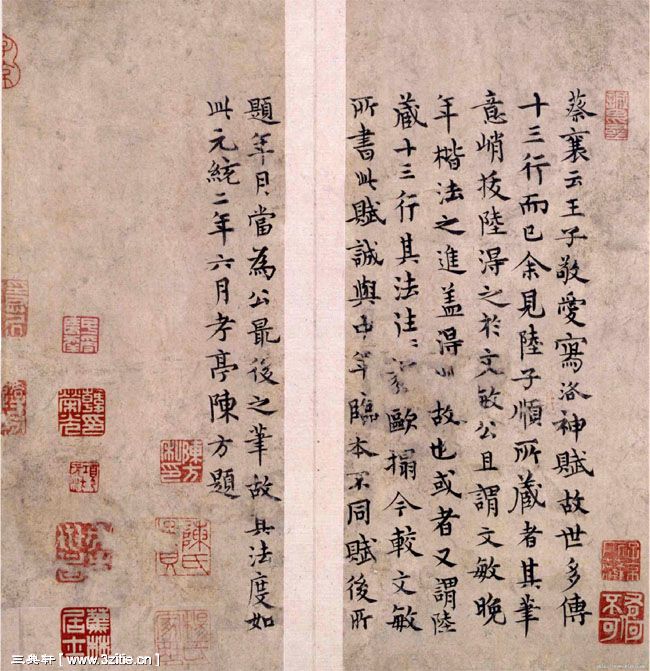 蔡襄云王子敬愛寫洛神賦故世多傳
十三行而已余見陸子順所藏者其筆
意峭拔陸得之於文敏公且謂文敏晚
年楷法之進盖得此故也或者又謂陸
藏十三行其法注〻歐搨今較文敏
所書此賦誠與中年臨本不同賦後所
題年月當為公最後之筆故其法度如
此元統二年六月孝亭陳方題
陳方
陳氏
三典軒[www.3zitie.cn]